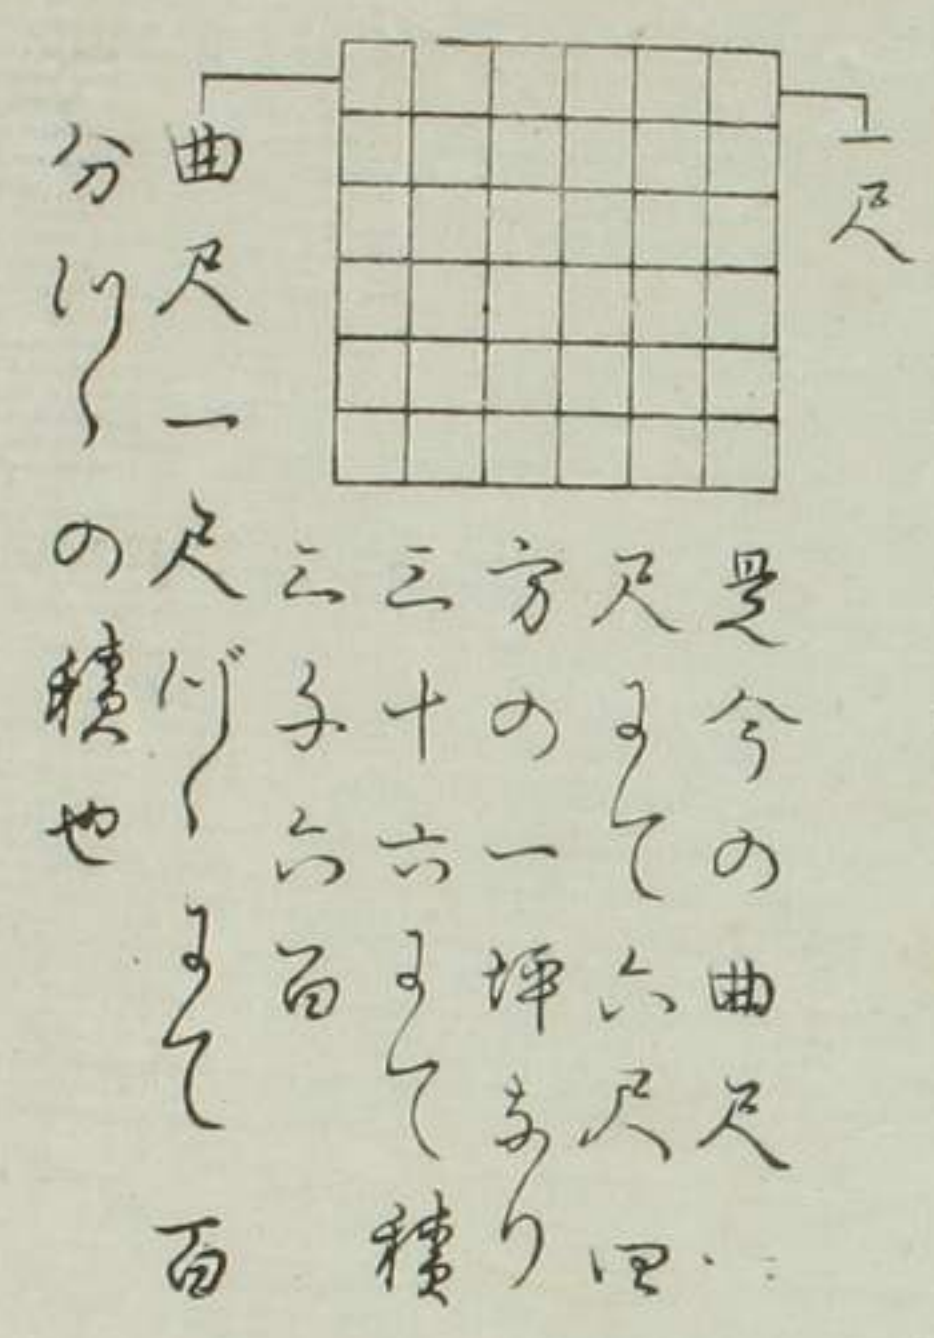 一尺
是今の曲尺
尺にて六尺四
方の一坪なり
三十六にて積
三千六百
曲尺一尺づゝにて百
分づゝの積也